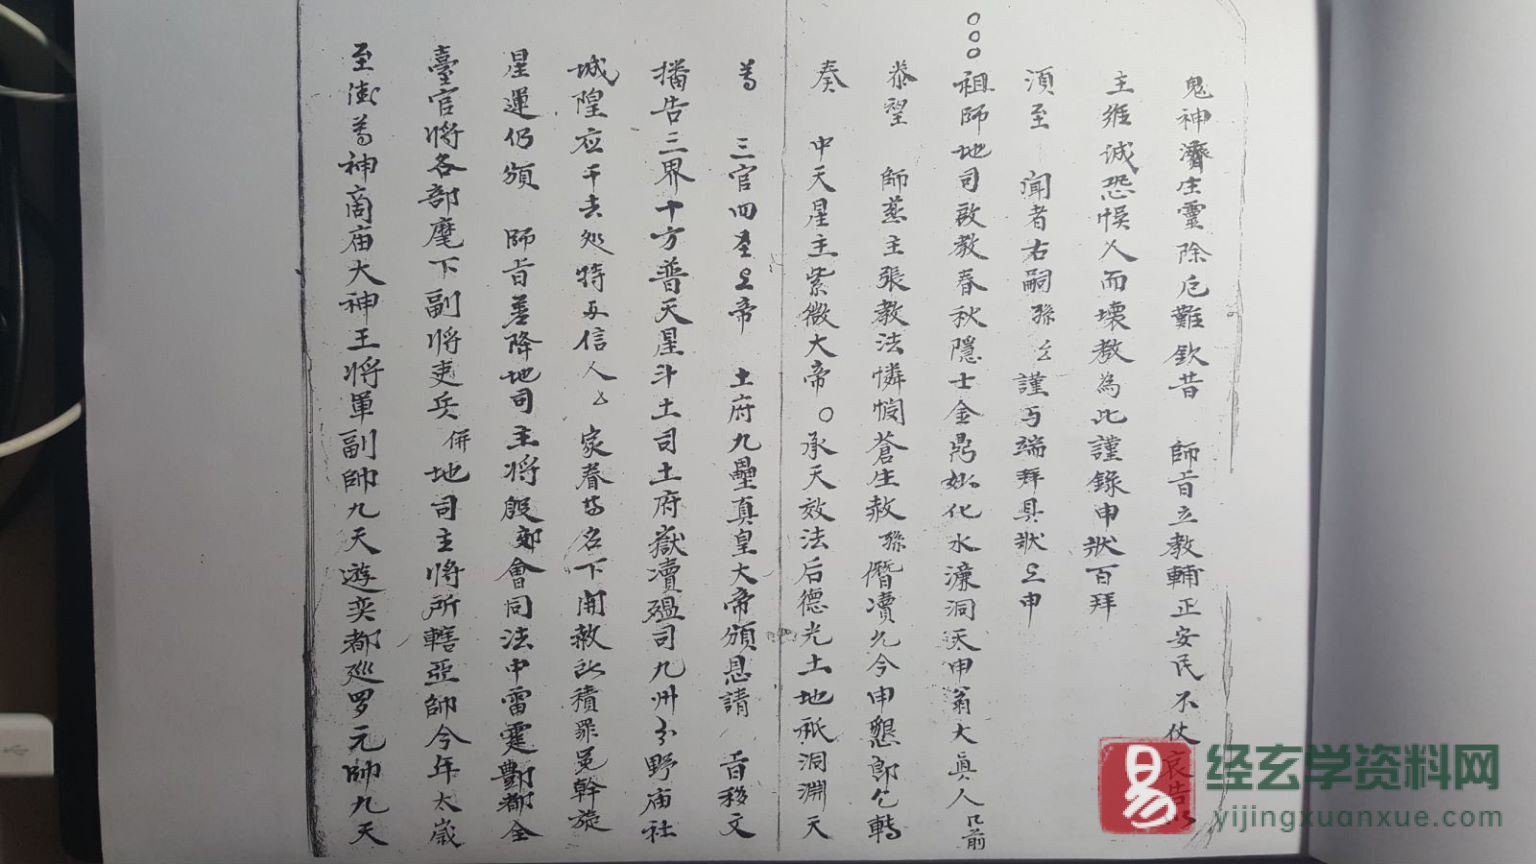 鬼神濟生靈除厄難欽昔 師旨立教輔正安民不仗哀告
主雖誠恐悮人而壞教為此謹錄申狀百拜
須至 聞者右嗣孫 謹与端拜具狀上申
○○○祖師地司啟教春秋隱士金鼎妙化水濂洞天申翁大眞人 前
恭望 師慈主張教法憐憫蒼生赦孫僭瀆允今申懇即乞轉
奏 中天星主紫微大帝○承天效法后德光土地祇洞淵天
尊 三官四聖上帝 土府九壘真皇大帝頒恩請 旨移文
播告三界十方普天星斗土司土府嶽瀆瘟司九州分野庙社
城隍应干去处特与信人厶家眷等名下開赦 積罪冤幹旋
星運仍頒 師旨差降地司主將殷郊會同法中雷霆酆都全
臺官將各部麾下副將吏兵併地司主將所轄亞師今年太嵗
至德尊神商庙大神王將軍副帥九天遊奕都巡罗元帥九天
经玄学资料网
yijingxuanxue.com
易